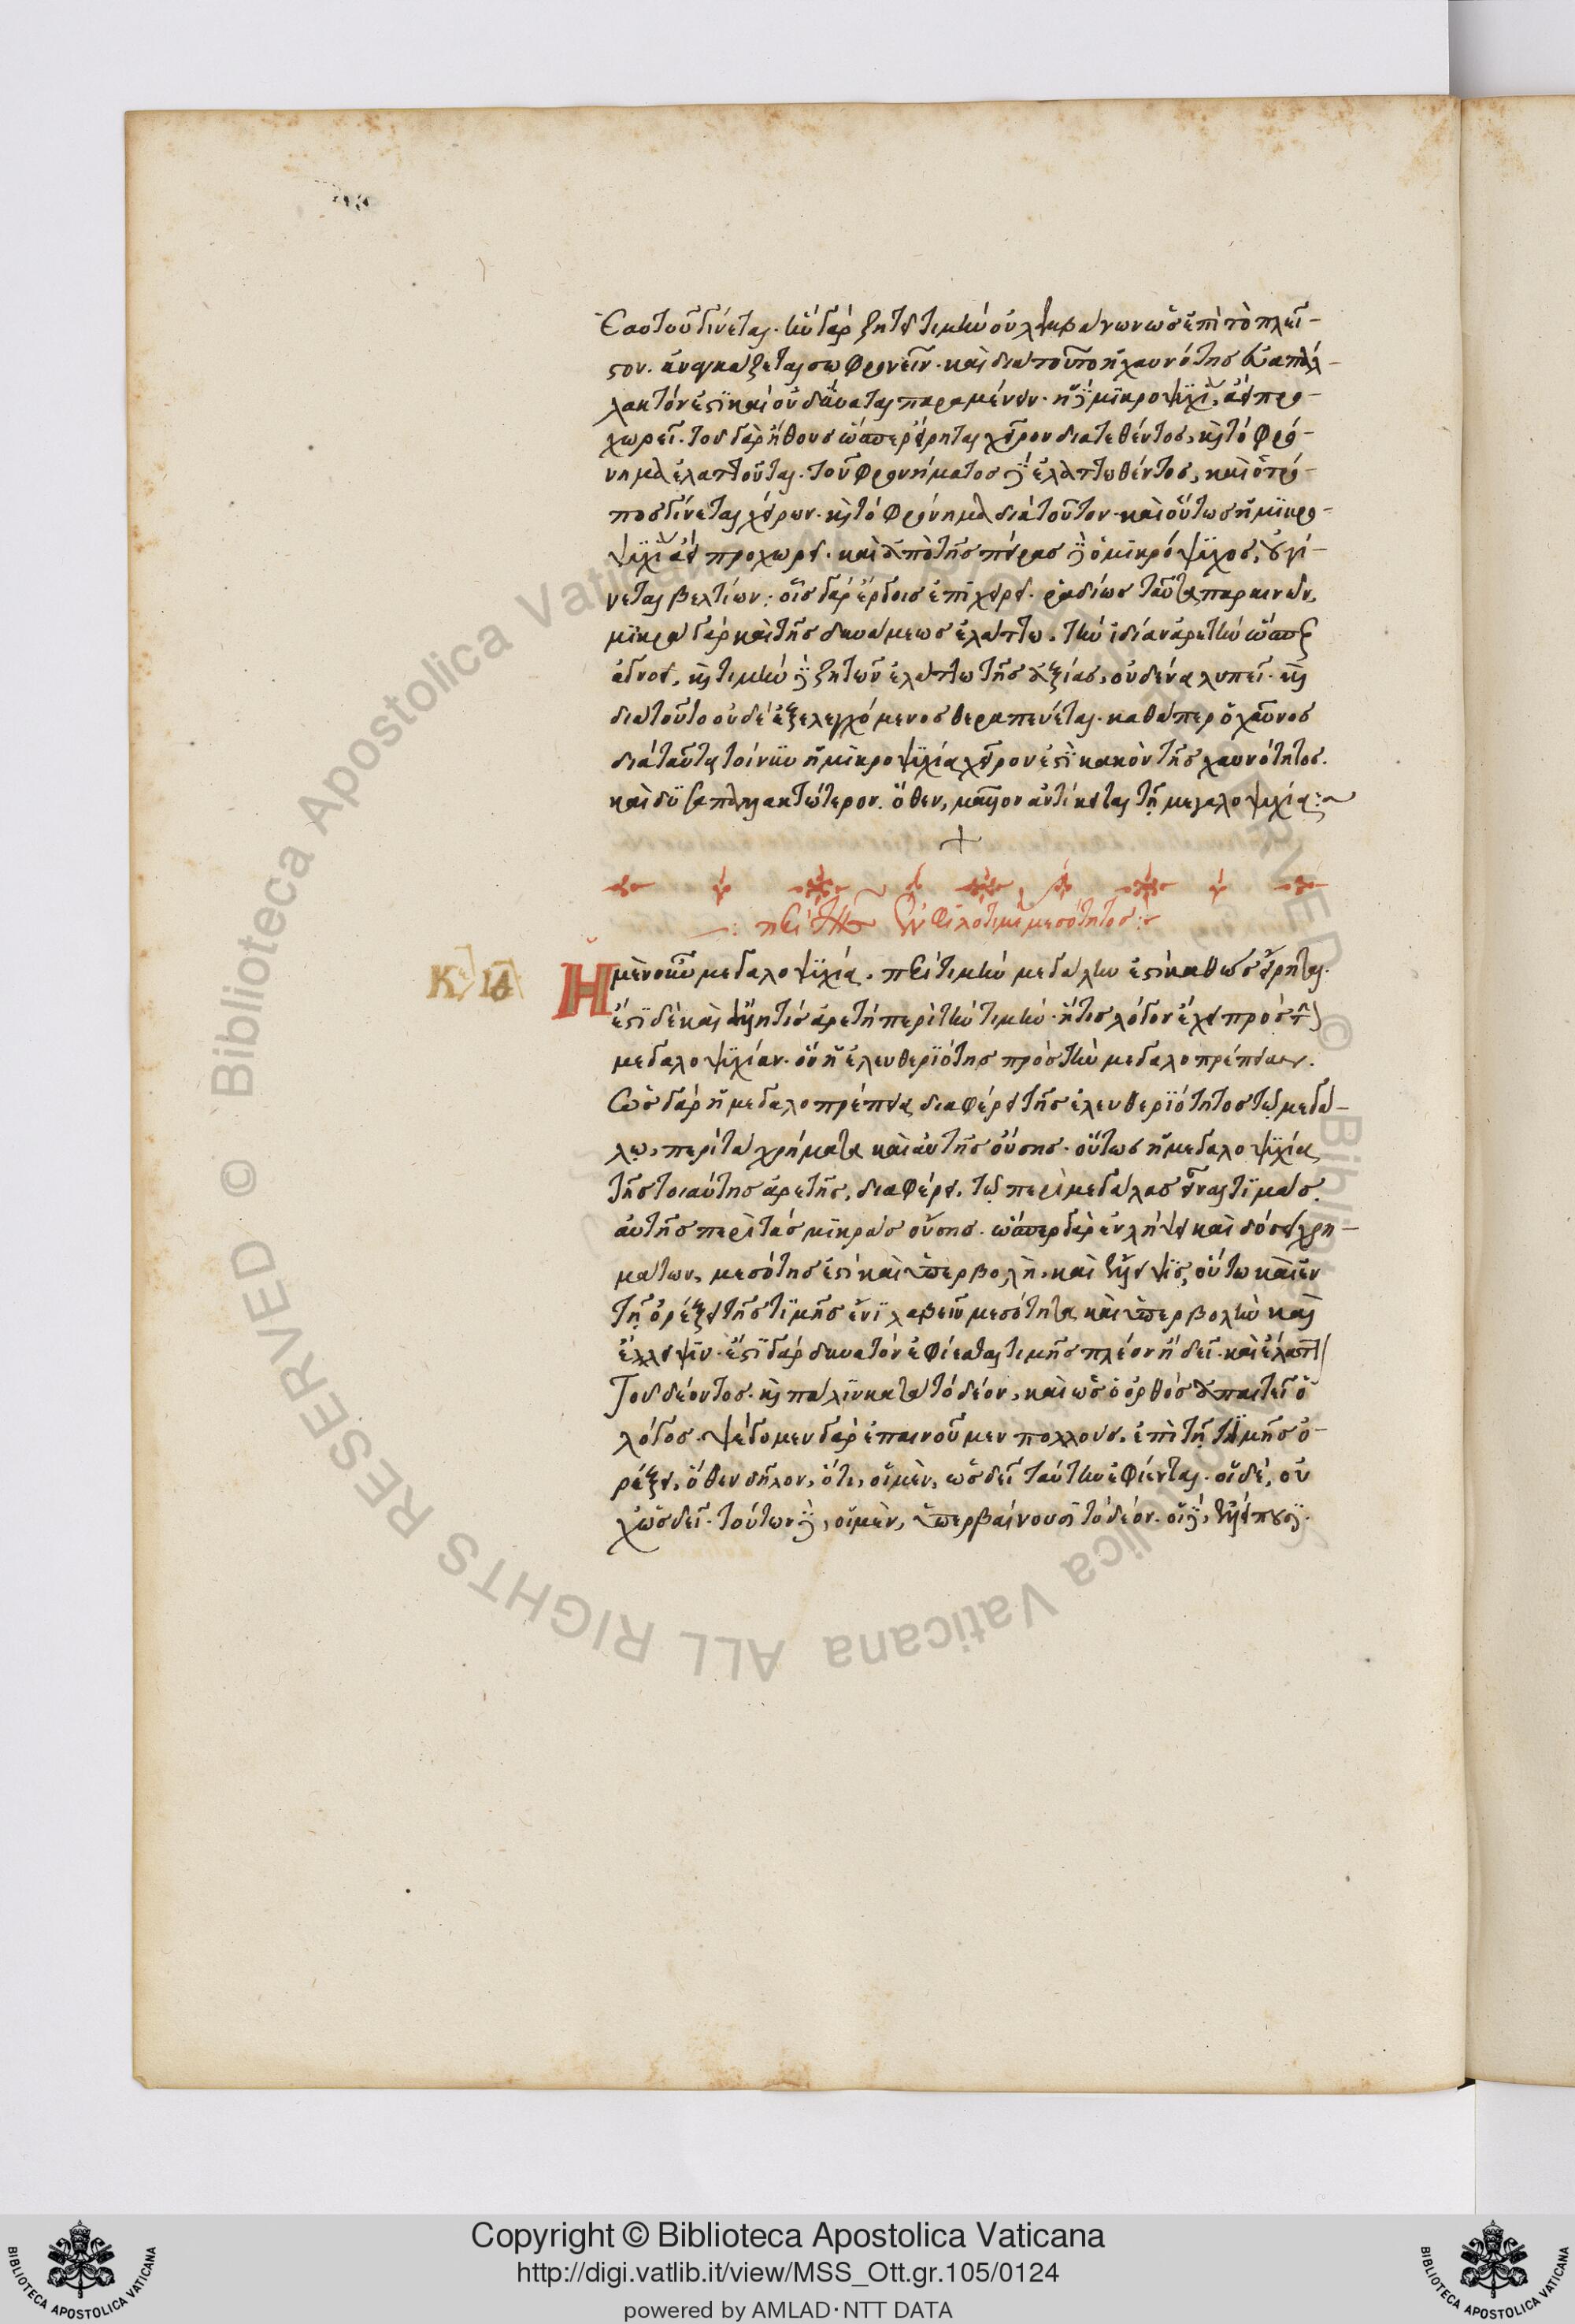 ἑαυτοῦ γίνεται. ἣν γὰρ ζητεῖ τιμὴν οὐ λαμβάνων ὡς ἐπὶ τὸ πλεῖ-
στον. ἀναγκάζεται σωφρονεῖν. καὶ διὰ τοῦτο ἡ χαυνότης εὐαπάλ-
λακτόν ἐστι καὶ οὐ δύναται παραμένειν. ἡ δὲ μικροψυχία ἀεὶ προ-
χωρεῖ. τοῦ γὰρ ἤθους ὥσπερ εἴρηται χεῖρον διατεθέντος, καὶ τὸ φρό-
νημα ἐλαττοῦται. τοῦ φρονήματος δὲ ἐλαττωθέντος, καὶ ὁ τρό-
πος γίνεται χείρων. καὶ τὸ φρόνημα διὰ τοῦτον. καὶ οὕτως ἡ μικρο-
ψυχία ἀεὶ προχωρεῖ. καὶ ἀπὸ τῆς πείρας δὲ ὁ μικρόψυχος, οὐ γί-
νεται βελτίων: οἷς γὰρ ἔργοις ἐπιχειρεῖ. ῥᾳδίως ταῦτα περαίνειν,
μικρὰ γὰρ καὶ τῆς δυνάμεως ἐλάττω. τὴν ἰδίαν ἀρετὴν ὥσπερ
ἀγνοεῖ, καὶ τιμὴν δὲ ζητῶν ἐλάττω τῆς ἀξίας, οὐδένα λυπεῖ. καὶ
διὰ τοῦτο οὐδὲ ἐξελεγχόμενος θεραπεύεται. καθάπερ ὁ χαῦνος
διὰ ταῦτα τοίνυν ἡ μικροψυχία χεῖρον ἐστὶ κακὸν τῆς χαυνότητος.
καὶ δυσαπαλλακτώτερον. ὅθεν, μᾶλλον ἀντίκειται τῇ μεγαλοψυχίᾳ:~
+
περὶ τῆς ἐν φιλοτιμίᾳ μεσότητος:~
Κε ΙΔ Ἡ μὲν οὖν μεγαλοψυχία. περὶ τιμὴν μεγάλην ἐστὶ καθὼς εἴρηται.
ἔστι δὲ καὶ ἄλλη τις ἀρετὴ περὶ τὴν τιμὴν. ἥτις λόγον ἔχει πρὸς τὴν
μεγαλοψυχίαν. ὃν ἡ ἐλευθεριότης πρὸς τὴν μεγαλοπρέπειαν.
ὡς γὰρ ἡ μεγαλοπρέπεια διαφέρει τῆς ἐλευθεριότητος τῷ μεγά-
λῳ, περὶ τὰ χρήματα καὶ αὐτῆς οὔσης. οὕτως ἡ μεγαλοψυχία
τῆς τοιαύτης ἀρετῆς, διαφέρει. τῷ περὶ μεγάλας εἶναι τιμάς.
αὐτῆς περὶ τὰς μικρὰς οὔσης. ὥσπερ γὰρ ἐν λήψει καὶ δόσει χρη-
μάτων, μεσότης ἐστὶ καὶ ὑπερβολὴ, καὶ ἔλλειψις, οὕτω καὶ ἐν
τῇ ὀρέξει τῆς τιμῆς ἔνι λαβεῖν μεσότητα καὶ ὑπερβολὴν καὶ
ἔλλειψιν. ἔστι γὰρ δυνατὸν ἐφίεσθαι τιμῆς πλέον ἢ δεῖ. καὶ ἔλαττον
τοῦ δέοντος. καὶ πάλιν κατὰ τὸ δέον, καὶ ὡς ὁ ὀρθὸς ἀπαιτεῖ ὁ
λόγος. ψέγομεν γὰρ ἐπαινοῦμεν πολλοὺς, ἐπὶ τῇ τιμῆς ὀ-
ρέξει, ὅθεν δῆλον, ὅτι, οἱ μὲν, ὡς δεῖ ταύτην ἐφίενται. οἱ δὲ, οὐ
χ ὡς δεῖ. τούτων δὲ, οἱ μὲν, ὑπερβαίνουσι τὸ δέον. οἱ δὲ, ἐλλείπουσι.
© Biblioteca Apostolica Vaticana ALL RIGHTS RESERVED
Copyright © Biblioteca Apostolica Vaticana
http://digi.vatlib.it/view/MSS_Ott.gr.105/0124
powered by AMLAD·NTT DATA
BIBLIOTECA APOSTOLICA VATICANA
BIBLIOTECA APOSTOLICA VATICANA